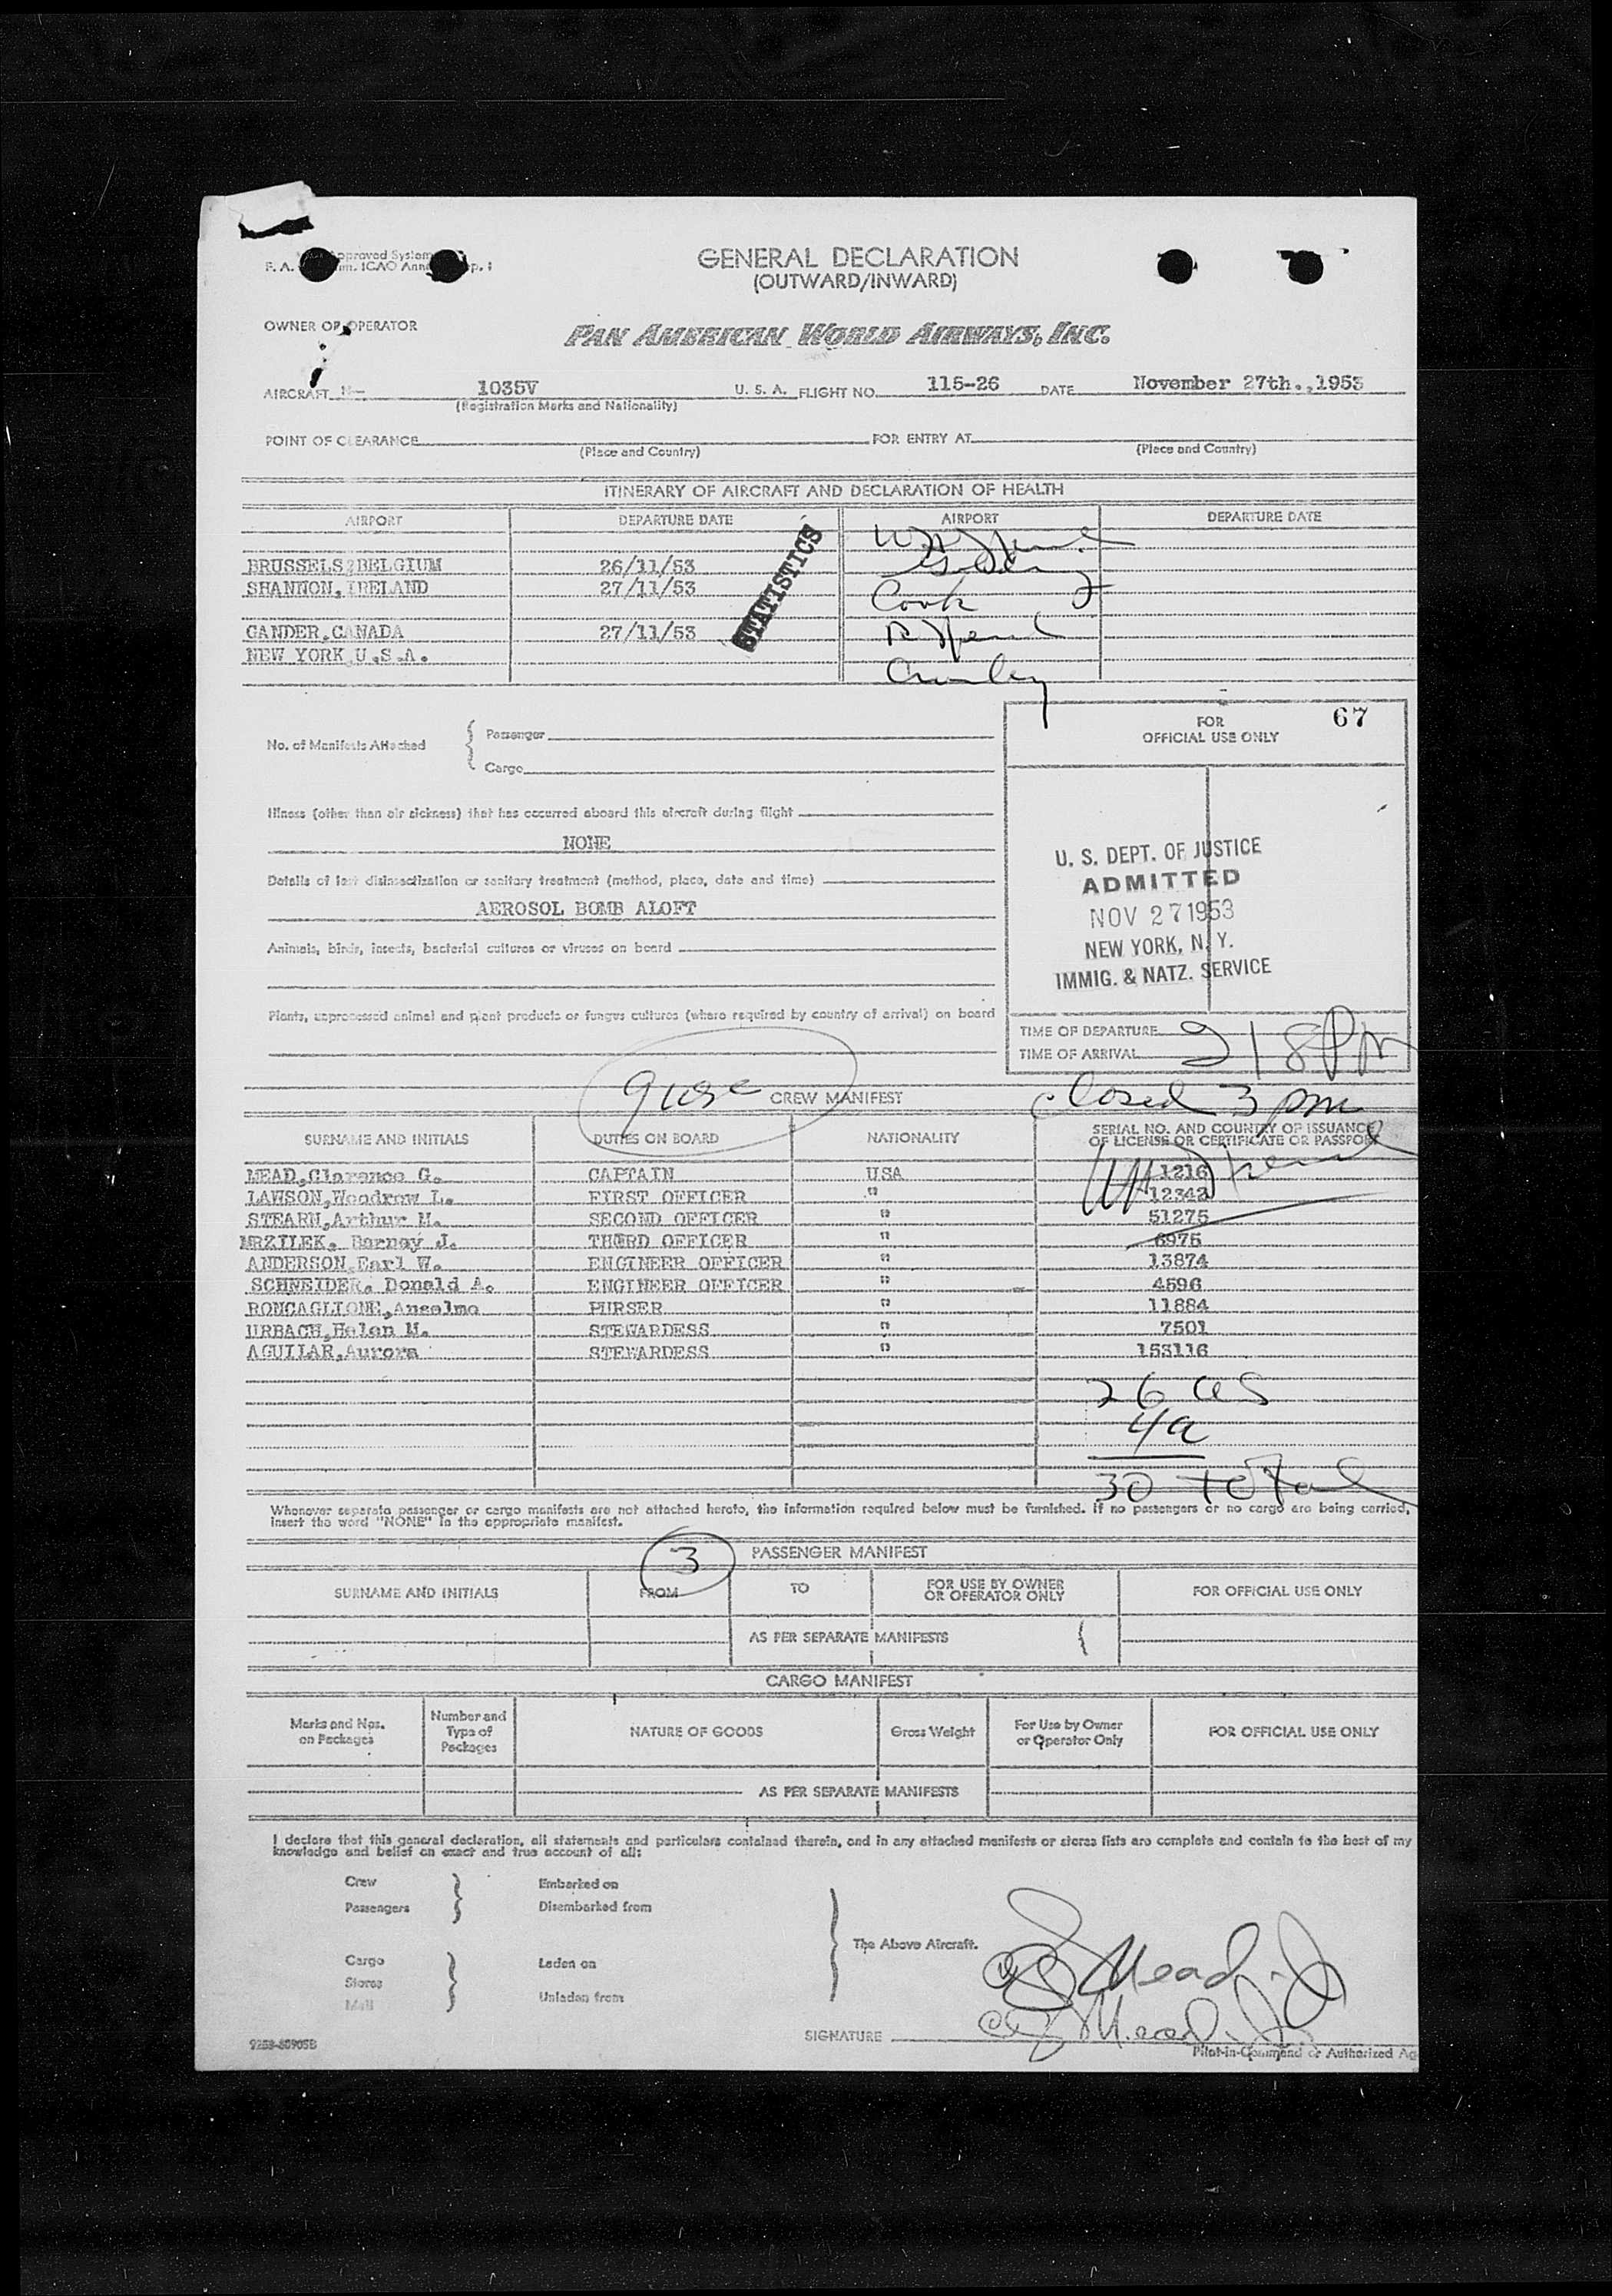 GENERAL DECLARATION
(OUTWARD/INWARD)
OWNER OR OPERATOR
PAN AMERICAN WORLD AIRWAYS, INC.
AIRCRAFT N- 1035V U. S. A. FLIGHT NO. 115-26 DATE November 27th.,1953
(Registration Marks and Nationality)
POINT OF CLEARANCE FOR ENTRY AT
(Place and Country) (Place and Country)
ITINERARY OF AIRCRAFT AND DECLARATION OF HEALTH
AIRPORT DEPARTURE DATE AIRPORT DEPARTURE DATE
BRUSSELS,BELGIUM 26/11/53
SHANNON,IRELAND 27/11/53 Cook
GANDER,CANADA 27/11/53
NEW YORK,U.S.A.
STATISTICS
FOR 67
OFFICIAL USE ONLY
No. of Manifests Attached
Passenger
Cargo
Illness (other than air sickness) that has occurred aboard this aircraft during flight
NONE
Details of last disinsectization or sanitary treatment (method, place, date and time)
AEROSOL BOMB ALOFT
Animals, birds, insects, bacterial cultures or viruses on board
Plants, unprocessed animal and plant products or fungus cultures (where required by country of arrival) on board
U. S. DEPT. OF JUSTICE
ADMITTED
NOV 27 1953
NEW YORK, N. Y.
IMMIG. & NATZ. SERVICE
TIME OF DEPARTURE
TIME OF ARRIVAL 218 Pm
closed 3 pm
9 usc CREW MANIFEST
SURNAME AND INITIALS DUTIES ON BOARD NATIONALITY SERIAL NO. AND COUNTRY OF ISSUANCE
OF LICENSE OR CERTIFICATE OR PASSPORT
MEAD,Clarence G. CAPTAIN USA 1216
LAWSON,Woodrow L. FIRST OFFICER " 12342
STEARN,Arthur M. SECOND OFFICER " 51275
MRZILEK, Barney J. THIRD OFFICER " 6975
ANDERSON,Earl W. ENGINEER OFFICER " 13874
SCHNEIDER, Donald A. ENGINEER OFFICER " 4596
RONCAGLIONE,Anselmo PURSER " 11884
URBACH,Helen M. STEWARDESS " 7501
AGUILAR,Aurora STEWARDESS " 153116
26 US
4a
30 total
Whenever separate passenger or cargo manifests are not attached hereto, the information required below must be furnished. If no passengers or no cargo are being carried,
insert the word "NONE" in the appropriate manifest.
3 PASSENGER MANIFEST
SURNAME AND INITIALS FROM TO FOR USE BY OWNER
OR OPERATOR ONLY FOR OFFICIAL USE ONLY
AS PER SEPARATE MANIFESTS
CARGO MANIFEST
Marks and Nos.
on Packages Number and
Type of
Packages NATURE OF GOODS Gross Weight For Use by Owner
or Operator Only FOR OFFICIAL USE ONLY
AS PER SEPARATE MANIFESTS
I declare that this general declaration, all statements and particulars contained therein, and in any attached manifests or stores lists are complete and contain to the best of my
knowledge and belief an exact and true account of all:
Crew Embarked on
Passengers Disembarked from
The Above Aircraft.
Cargo Laden on
Stores
Mail Unladen from
Mead Jr
SIGNATURE Mead Jr
Pilot-in-Command or Authorized Ag